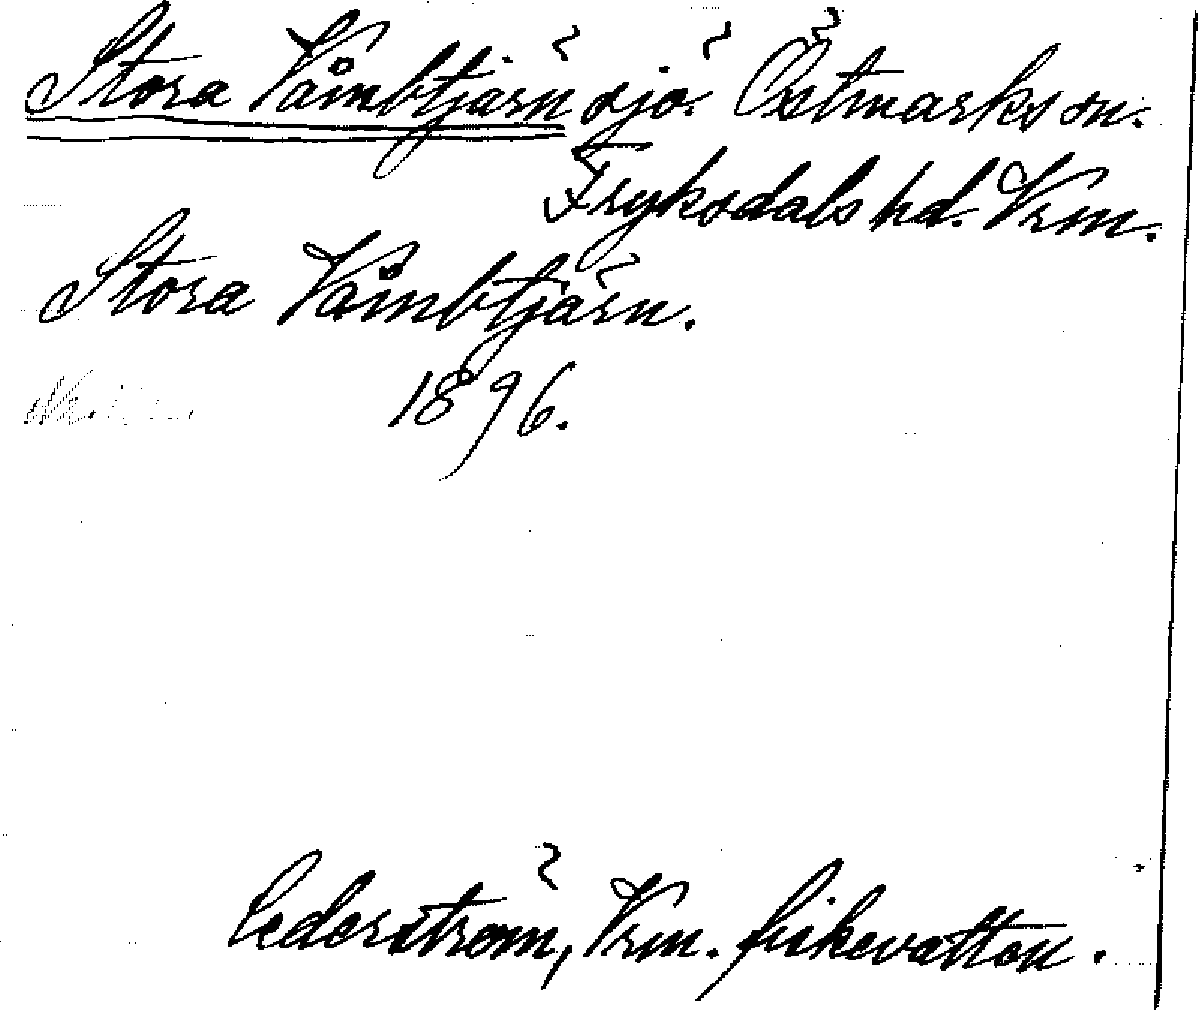 Stora Våmbtjärn sjö. Östmarks sn.
Fryksdals hd. Vrm.
Stora Våmbtjärn.
1896.
Cederström, Vrm. fiskevatten.